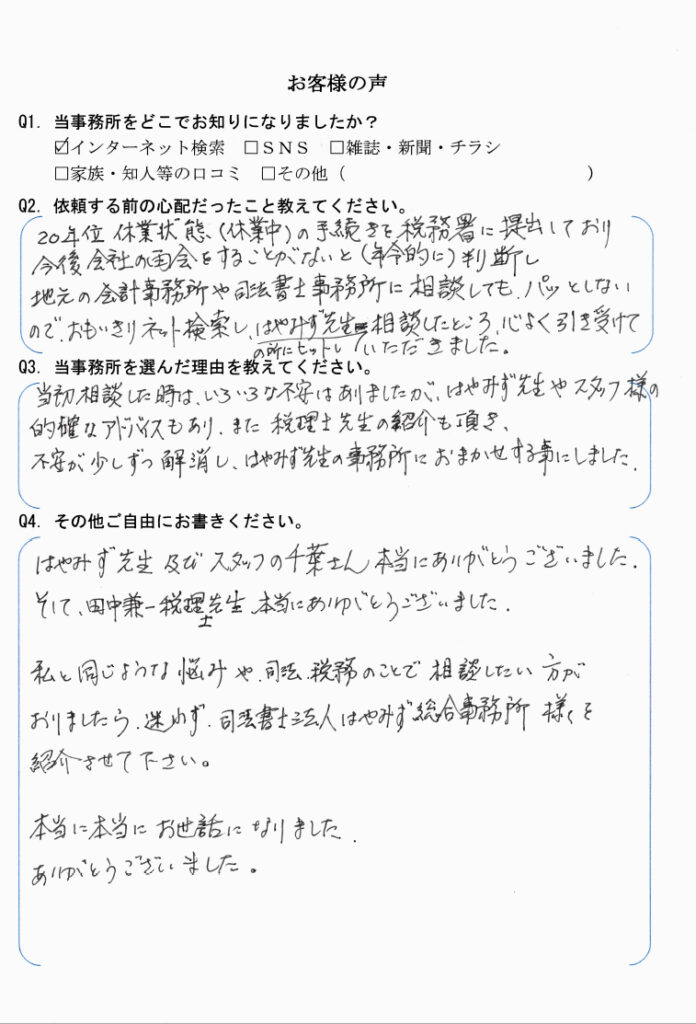 お客様の声
Q1. 当事務所をどこでお知りになりましたか？
☑インターネット検索 □ＳＮＳ □雑誌・新聞・チラシ
□家族・知人等の口コミ □その他（ ）
Q2. 依頼する前の心配だったこと教えてください。
20年位 休業状態（休業中）の手続きを税務署に提出しており
今後会社の再会をすることがないと（年令的に）判断し
地元の会計事務所や司法書士事務所に相談しても、パッとしない
ので、おもいきりネット検索し、はやみず先生 相談したところ、心よく引き受けて
の所にヒットし いただきました。
Q3. 当事務所を選んだ理由を教えてください。
当初相談した時は、いろいろな不安はありましたが、はやみず先生やスタッフ様の
的確なアドバイスもあり、また 税理士先生の紹介も頂き、
不安が少しずつ解消し、はやみず先生の事務所におまかせする事にしました。
Q4. その他ご自由にお書きください。
はやみず先生 及び スタッフの千葉さん 本当にありがとうございました。
そして、田中兼一税理士先生、本当にありがとうございました。
私と同じような悩みや、司法、税務のことで 相談したい 方が
おりましたら、迷わず、司法書士法人はやみず総合事務所 様を
紹介させて下さい。
本当に本当に お世話になりました、
ありがとうございました。